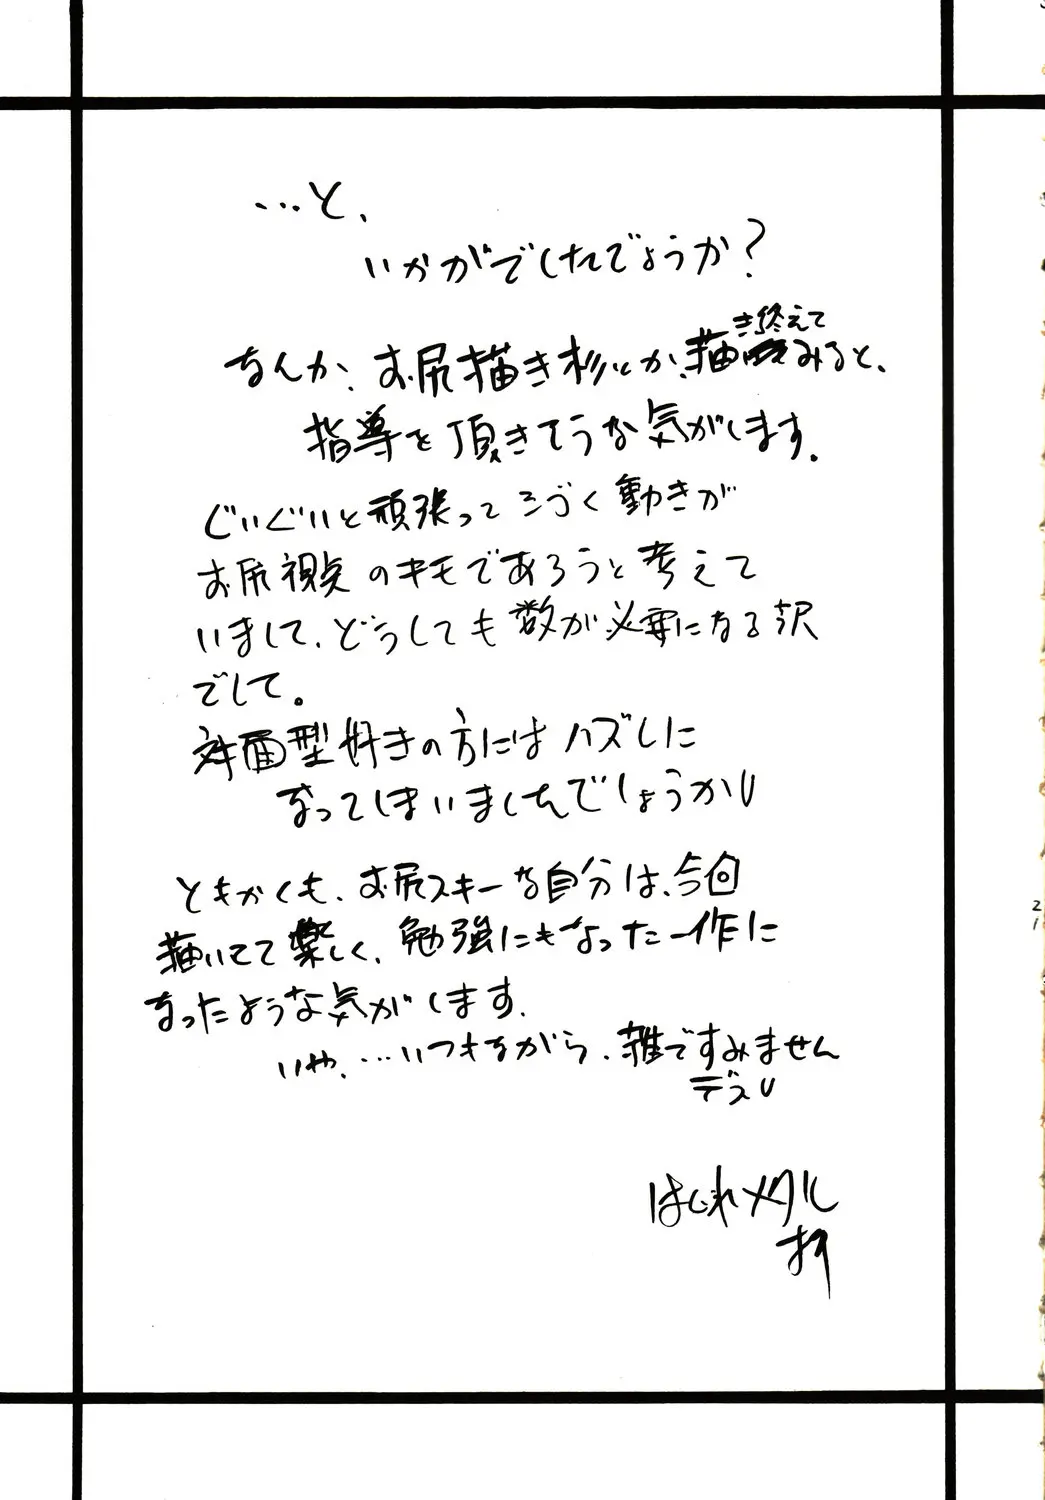 …と、
いかがでしたでしょうか？
なんか、お尻描き杉とか、描き終えてみると、
指導を頂きそうな気がします。
ぐいぐいと頑張って 動きが
お尻視点のキモであろうと考えて
いまして、どうしても数が必要になる訳
でして。
対面型好きの方にはハズしに
なってしまいましたでしょうか
ともかくも、お尻スキーな自分は、今回
描いてて楽しく、勉強にもなった一作に
なったような気がします。
いや、…いつもながら、雑ですみません
デス
21